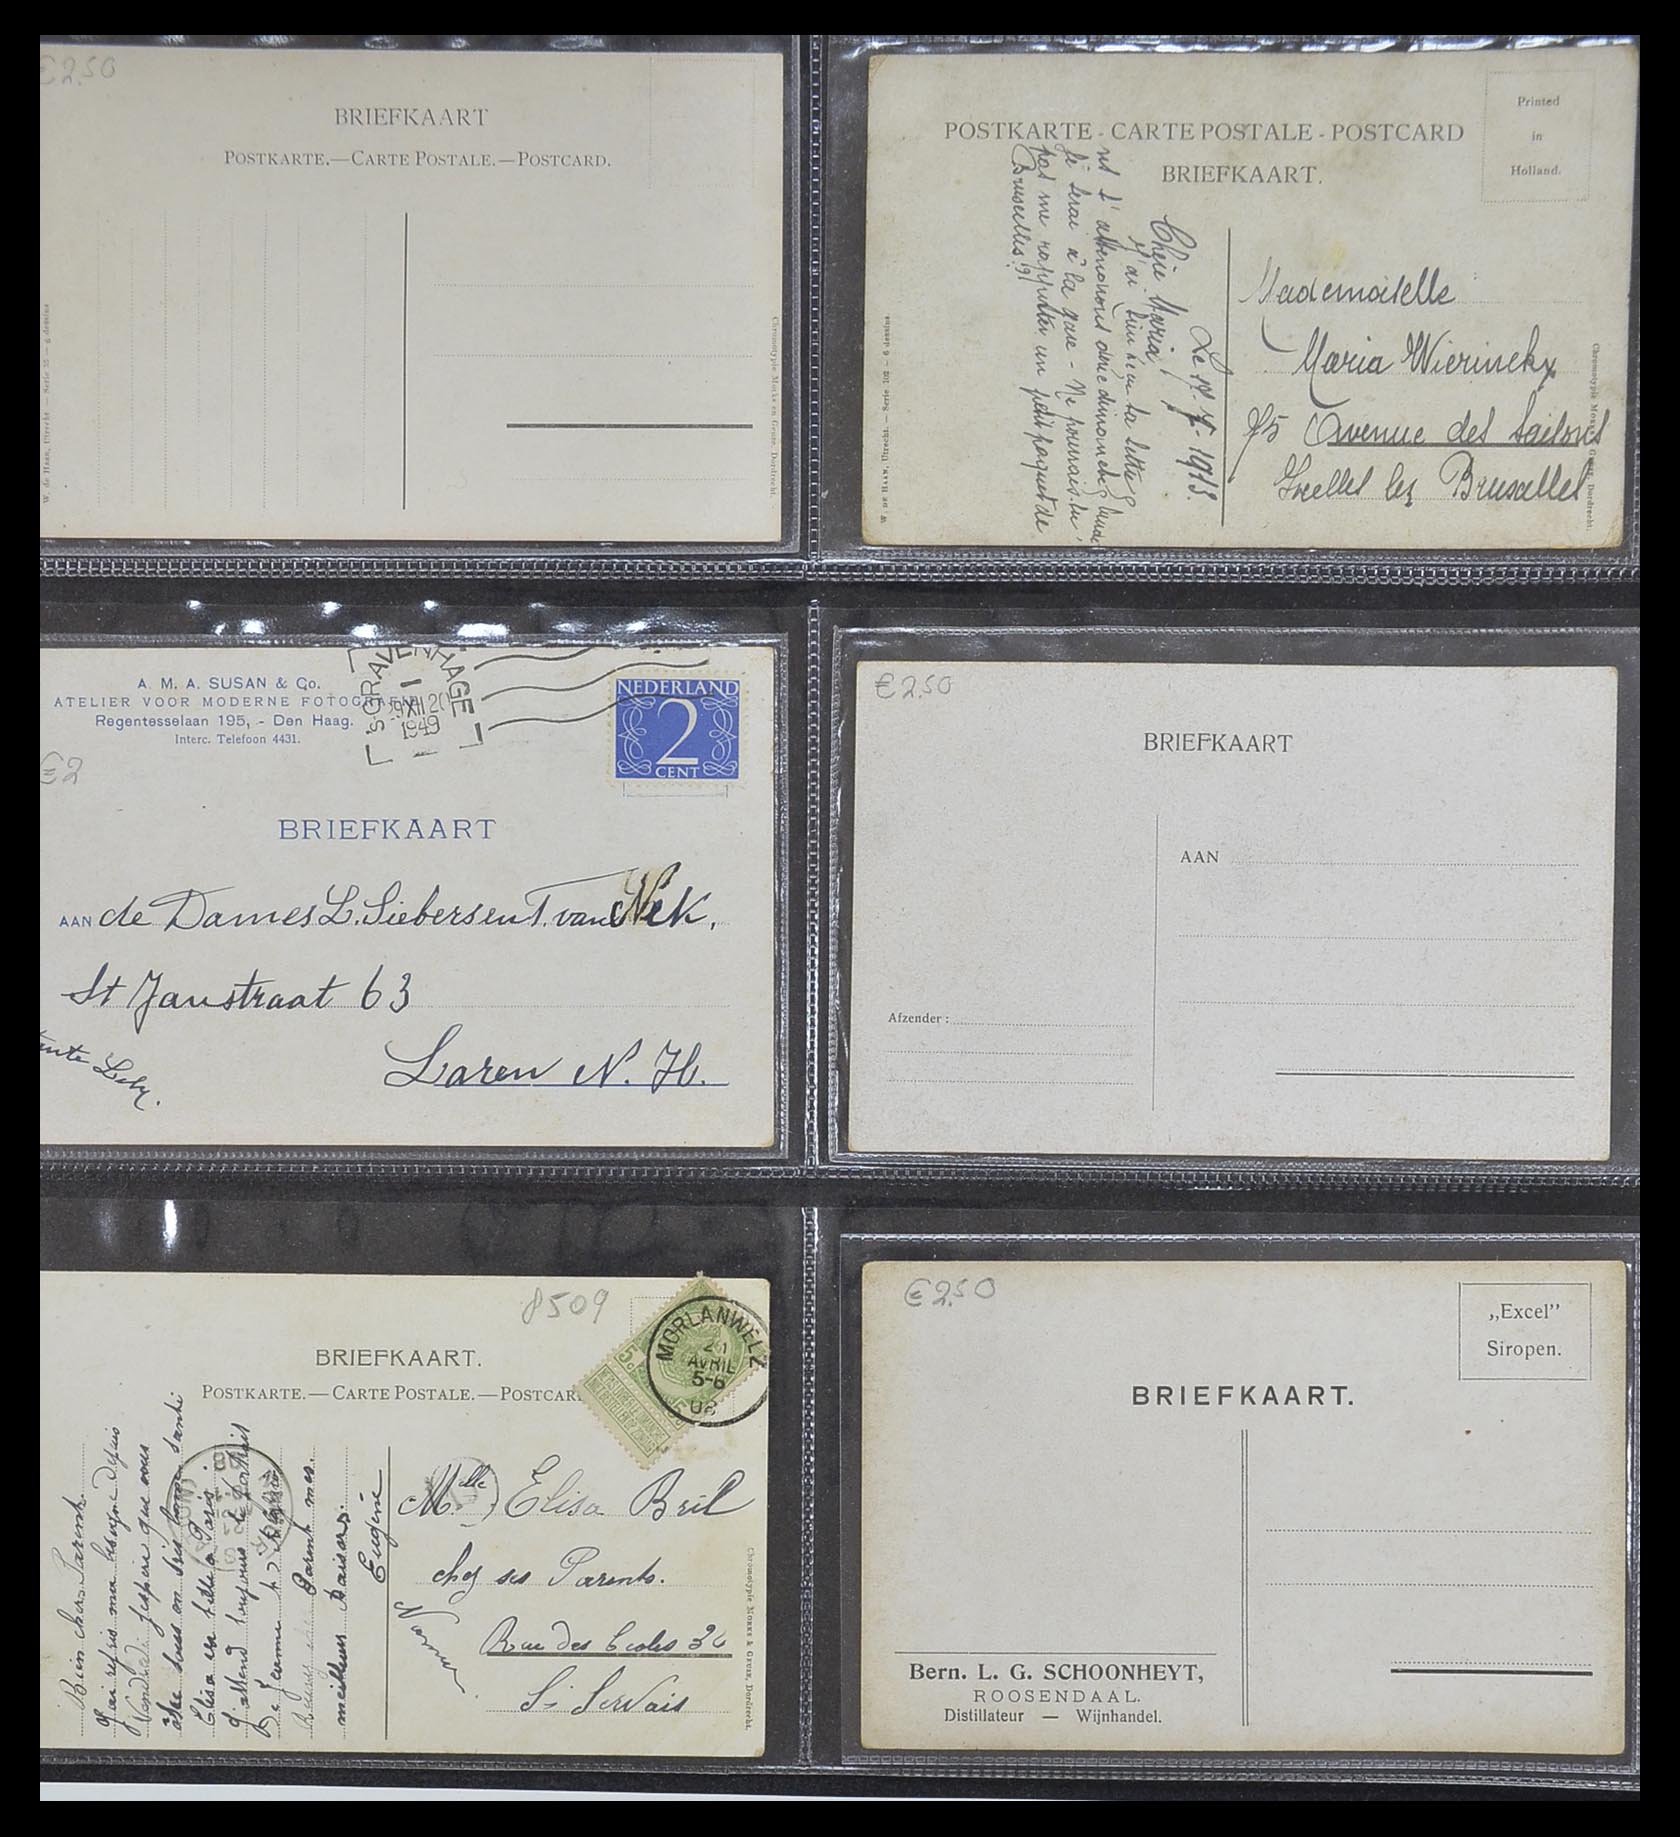 €2.50
BRIEFKAART
POSTKARTE.—CARTE POSTALE.—POSTCARD.
W. de Haan, Utrecht — Serie 35 — 6 dessins
Chromotypie Morks en Geuze, Dordrecht.
POSTKARTE - CARTE POSTALE - POSTCARD
BRIEFKAART.
Printed
in
Holland.
Le
1913.
Chère Maria,
J'ai bien reçu ta lettre &
dimanche
je serai à la gare - Ne pourrais-tu
pas me rapporter un petit paquet de
Bruxelles?
Mademoiselle
Maria Wierinckx
75 Avenue des Saisons
Ixelles lez Bruxelles
W. DE HAAN, Utrecht. — Serie 102 - 6 dessins.
A. M. A. SUSAN & Co.
ATELIER VOOR MODERNE FOTOGRAFIE
Regentesselaan 195, - Den Haag.
Interc. Telefoon 4431.
'S GRAVENHAGE
1
29 XII 20
1949
NEDERLAND
2
CENT
€2
BRIEFKAART
AAN de Dames L. Siebers en T. van Nek.
St Janstraat 63
Laren N. H.
tante
€2.50
BRIEFKAART
AAN
Afzender :
8509
BRIEFKAART.
POSTKARTE.—CARTE POSTALE.—POSTCAR
MORLANWELZ
21
AVRIL
5-6
08
Bien chers Parents
J'ai repris ma besogne depuis
j'espère que vous
êtes tous en très bonne santé
Elisa
J'attend toujours le portrait
meilleurs baisers.
Eugène
Melle Elisa Bril
chez ses Parents.
Rue des Ecoles
St Servais
Namur
Chromotypie MORKS & GEUZE, Dordrecht.
€2.50
„Excel”
Siropen.
BRIEFKAART.
Bern. L. G. SCHOONHEYT,
ROOSENDAAL.
Distillateur — Wijnhandel.